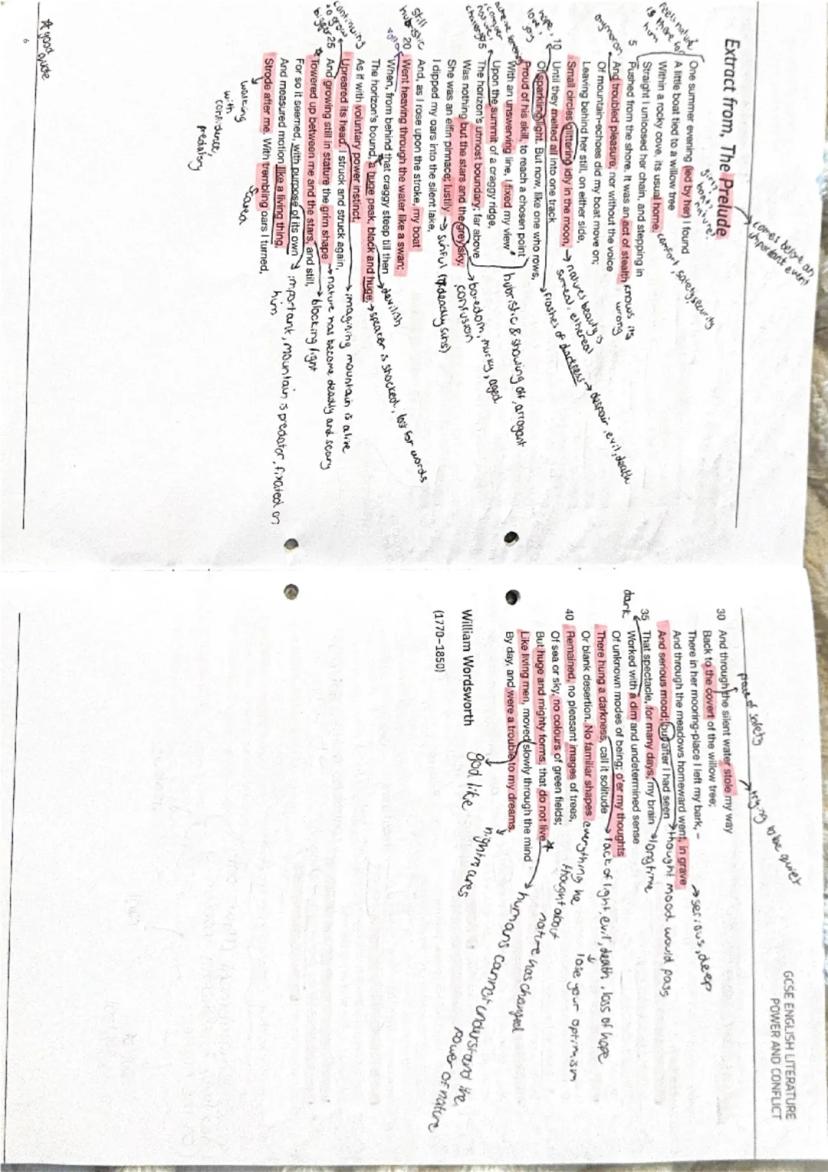 Extract from, The Prelude
comes before an important event
giving birth to nature?
feels nature is there for him
One summer evening (led by her) I found
A little boat tied to a willow tree
Within a rocky cove, its usual home.
comfort, safety, security
Straight I unloosed her chain, and stepping in
5 Pushed from the shore. It was an act of stealth
knows its wrong
oxymoron
And troubled pleasure, nor without the voice
Of mountain-echoes did my boat move on;
Leaving behind her still, on either side,
Small circles glittering idly in the moon,
natures beauty is surreal, ethereal
hope,
love, joy
10 Until they melted all into one track
Of sparkling light. But now, like one who rows,
flashes of darkness → despair, evil, death
Proud of his skill, to reach a chosen point
With an unswerving line, I fixed my view
hubristic & showing off, arrogant
Upon the summit of a craggy ridge,
15 The horizon's utmost boundary; far above
Was nothing but the stars and the grey sky.
boredom, murky, aged
confusion
She was an elfin pinnace; lustily
sinful (7 deadly sins)
I dipped my oars into the silent lake,
And, as I rose upon the stroke, my boat
still hubristic
20 Went heaving through the water like a swan;
When, from behind that craggy steep till then
devilish
The horizon's bound, a huge peak, black and huge,
speaker is shocked, lost for words
As if with voluntary power instinct,
imagining mountain is alive
Upreared its head. I struck and struck again,
continuing to grow bigger
25 And growing still in stature the grim shape
nature has become deadly and scary
Towered up between me and the stars, and still,
blocking light
For so it seemed, with purpose of its own
important, mountain is predator, fixated on him
And measured motion like a living thing,
Strode after me. With trembling oars I turned,
walking with confidence, predatory
scared
* good quote
6
GCSE ENGLISH LITERATURE
POWER AND CONFLICT
30 And through the silent water stole my way
trying to be quiet
Back to the covert of the willow tree;
place of safety
There in her mooring-place I left my bark, –
And through the meadows homeward went, in grave
serious, deep
And serious mood; but after I had seen
thought mood would pass
35 That spectacle, for many days, my brain
long time
Worked with a dim and undetermined sense
dark
Of unknown modes of being; o'er my thoughts
There hung a darkness, call it solitude
lack of light, evil, death, loss of hope
lose your optimism
Or blank desertion. No familiar shapes
everything he thought about nature has changed
40 Remained, no pleasant images of trees,
Of sea or sky, no colours of green fields;
But huge and mighty forms, that do not live
Like living men, moved slowly through the mind
humans cannot understand the power of nature
By day, and were a trouble to my dreams.
nightmares
god like
William Wordsworth
(1770–1850)